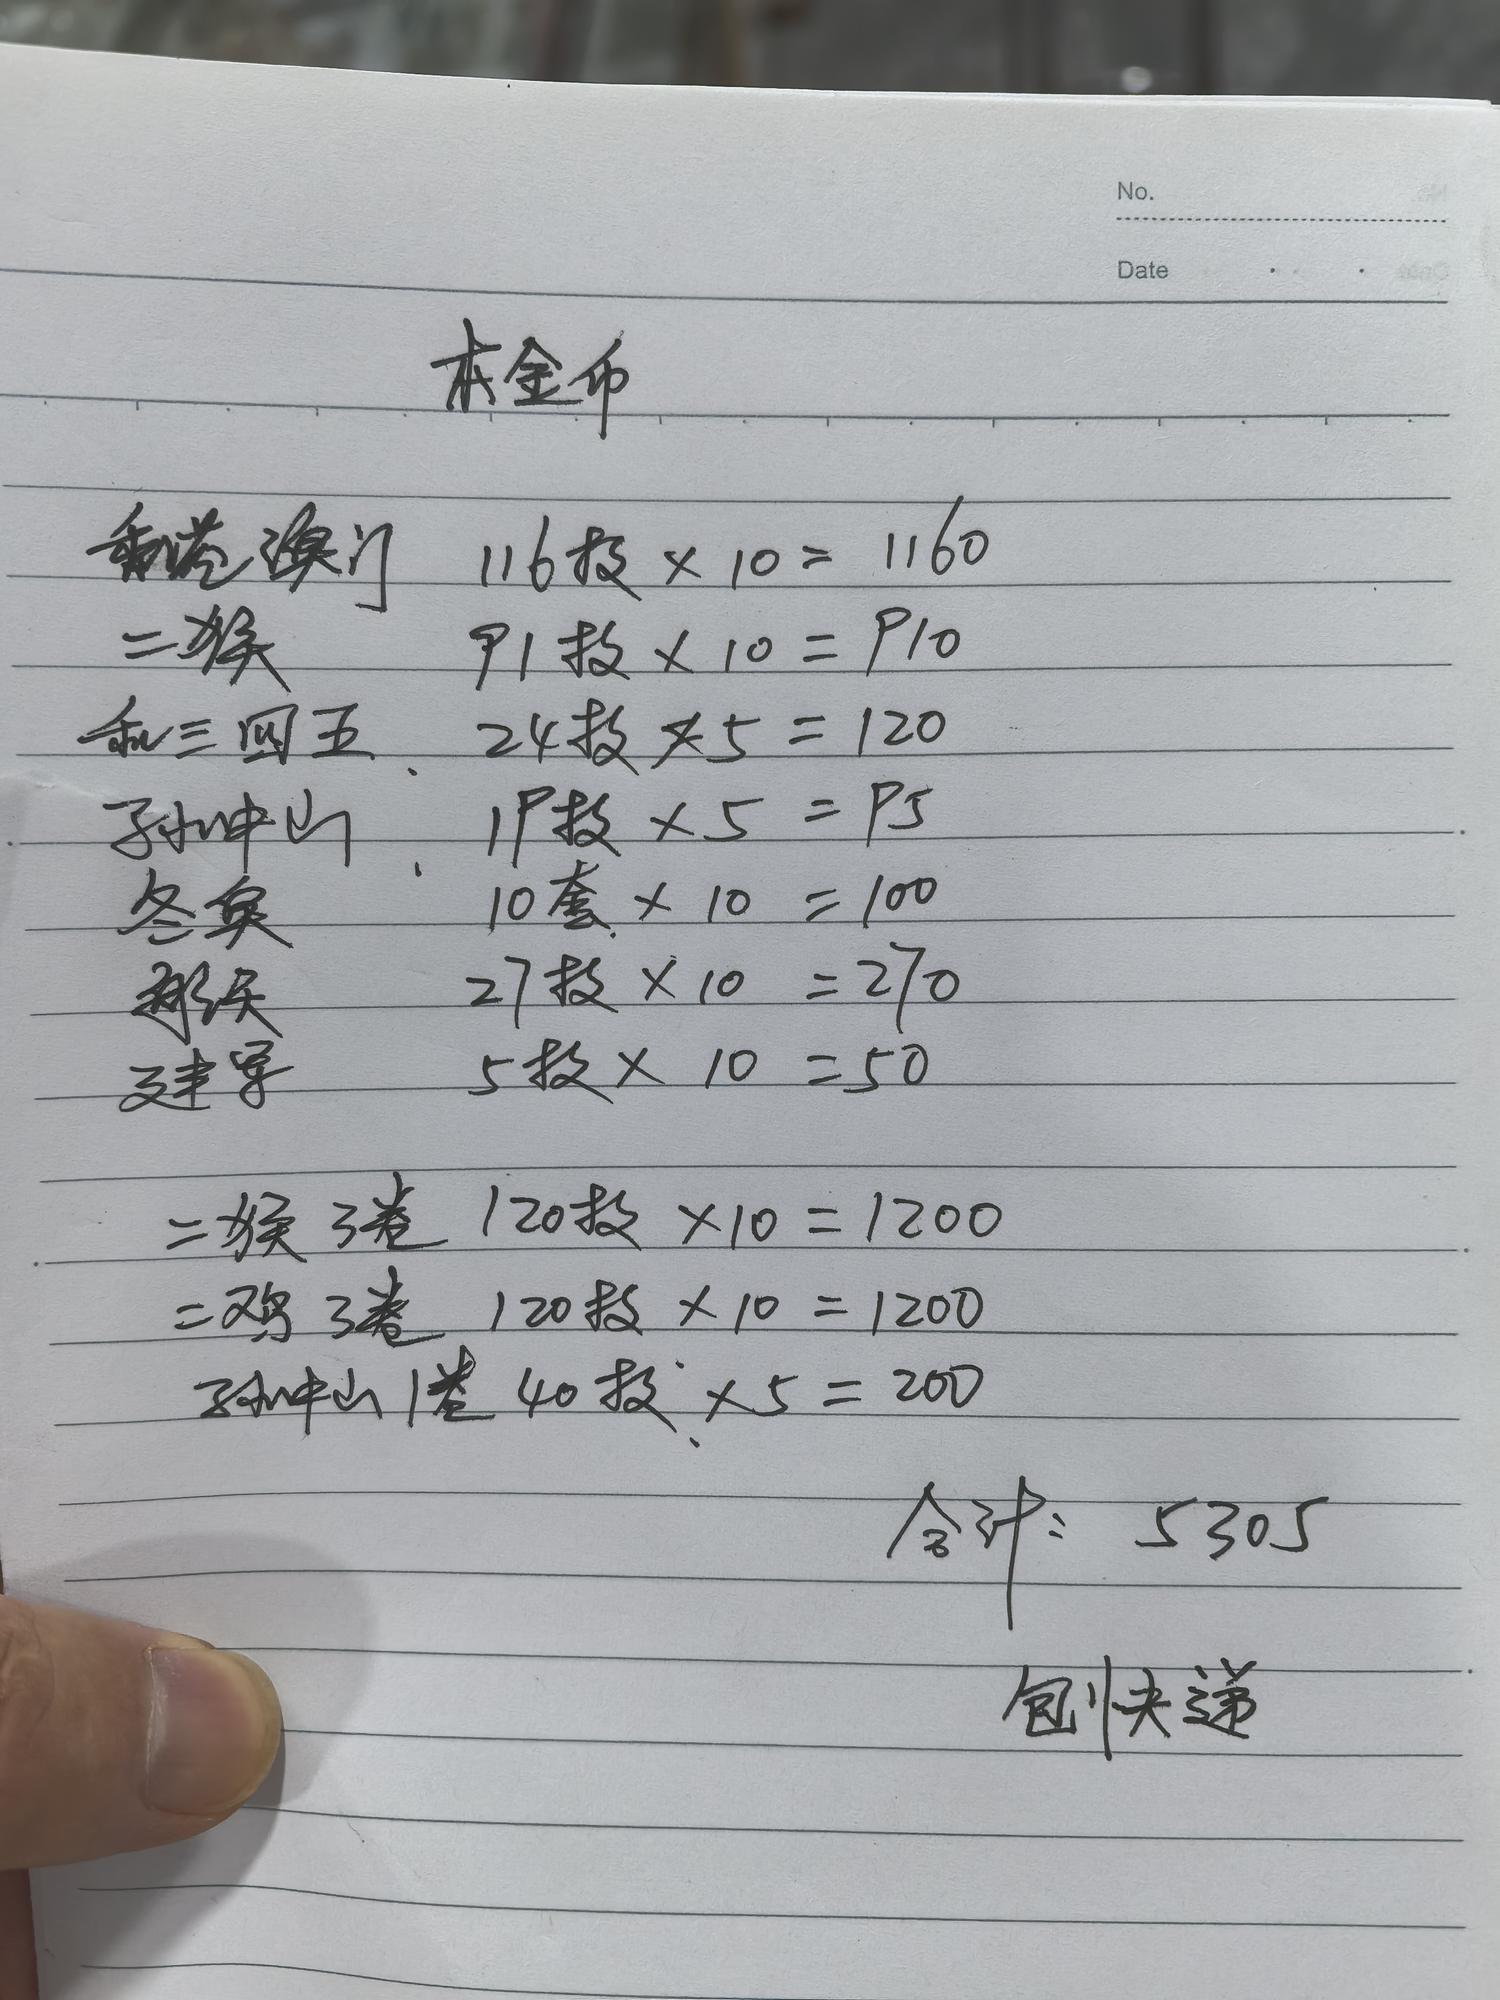 No.
Date
本金币
香港澳门 116枚 × 10 = 1160
二猴 91枚 × 10 = 910
和三四五 24枚 × 5 = 120
孙中山 19枚 × 5 = 95
冬奥 10套 × 10 = 100
航天 27枚 × 10 = 270
建军 5枚 × 10 = 50
二猴 3卷 120枚 × 10 = 1200
二鸡 3卷 120枚 × 10 = 1200
孙中山 1卷 40枚 × 5 = 200
合计: 5305
包快递